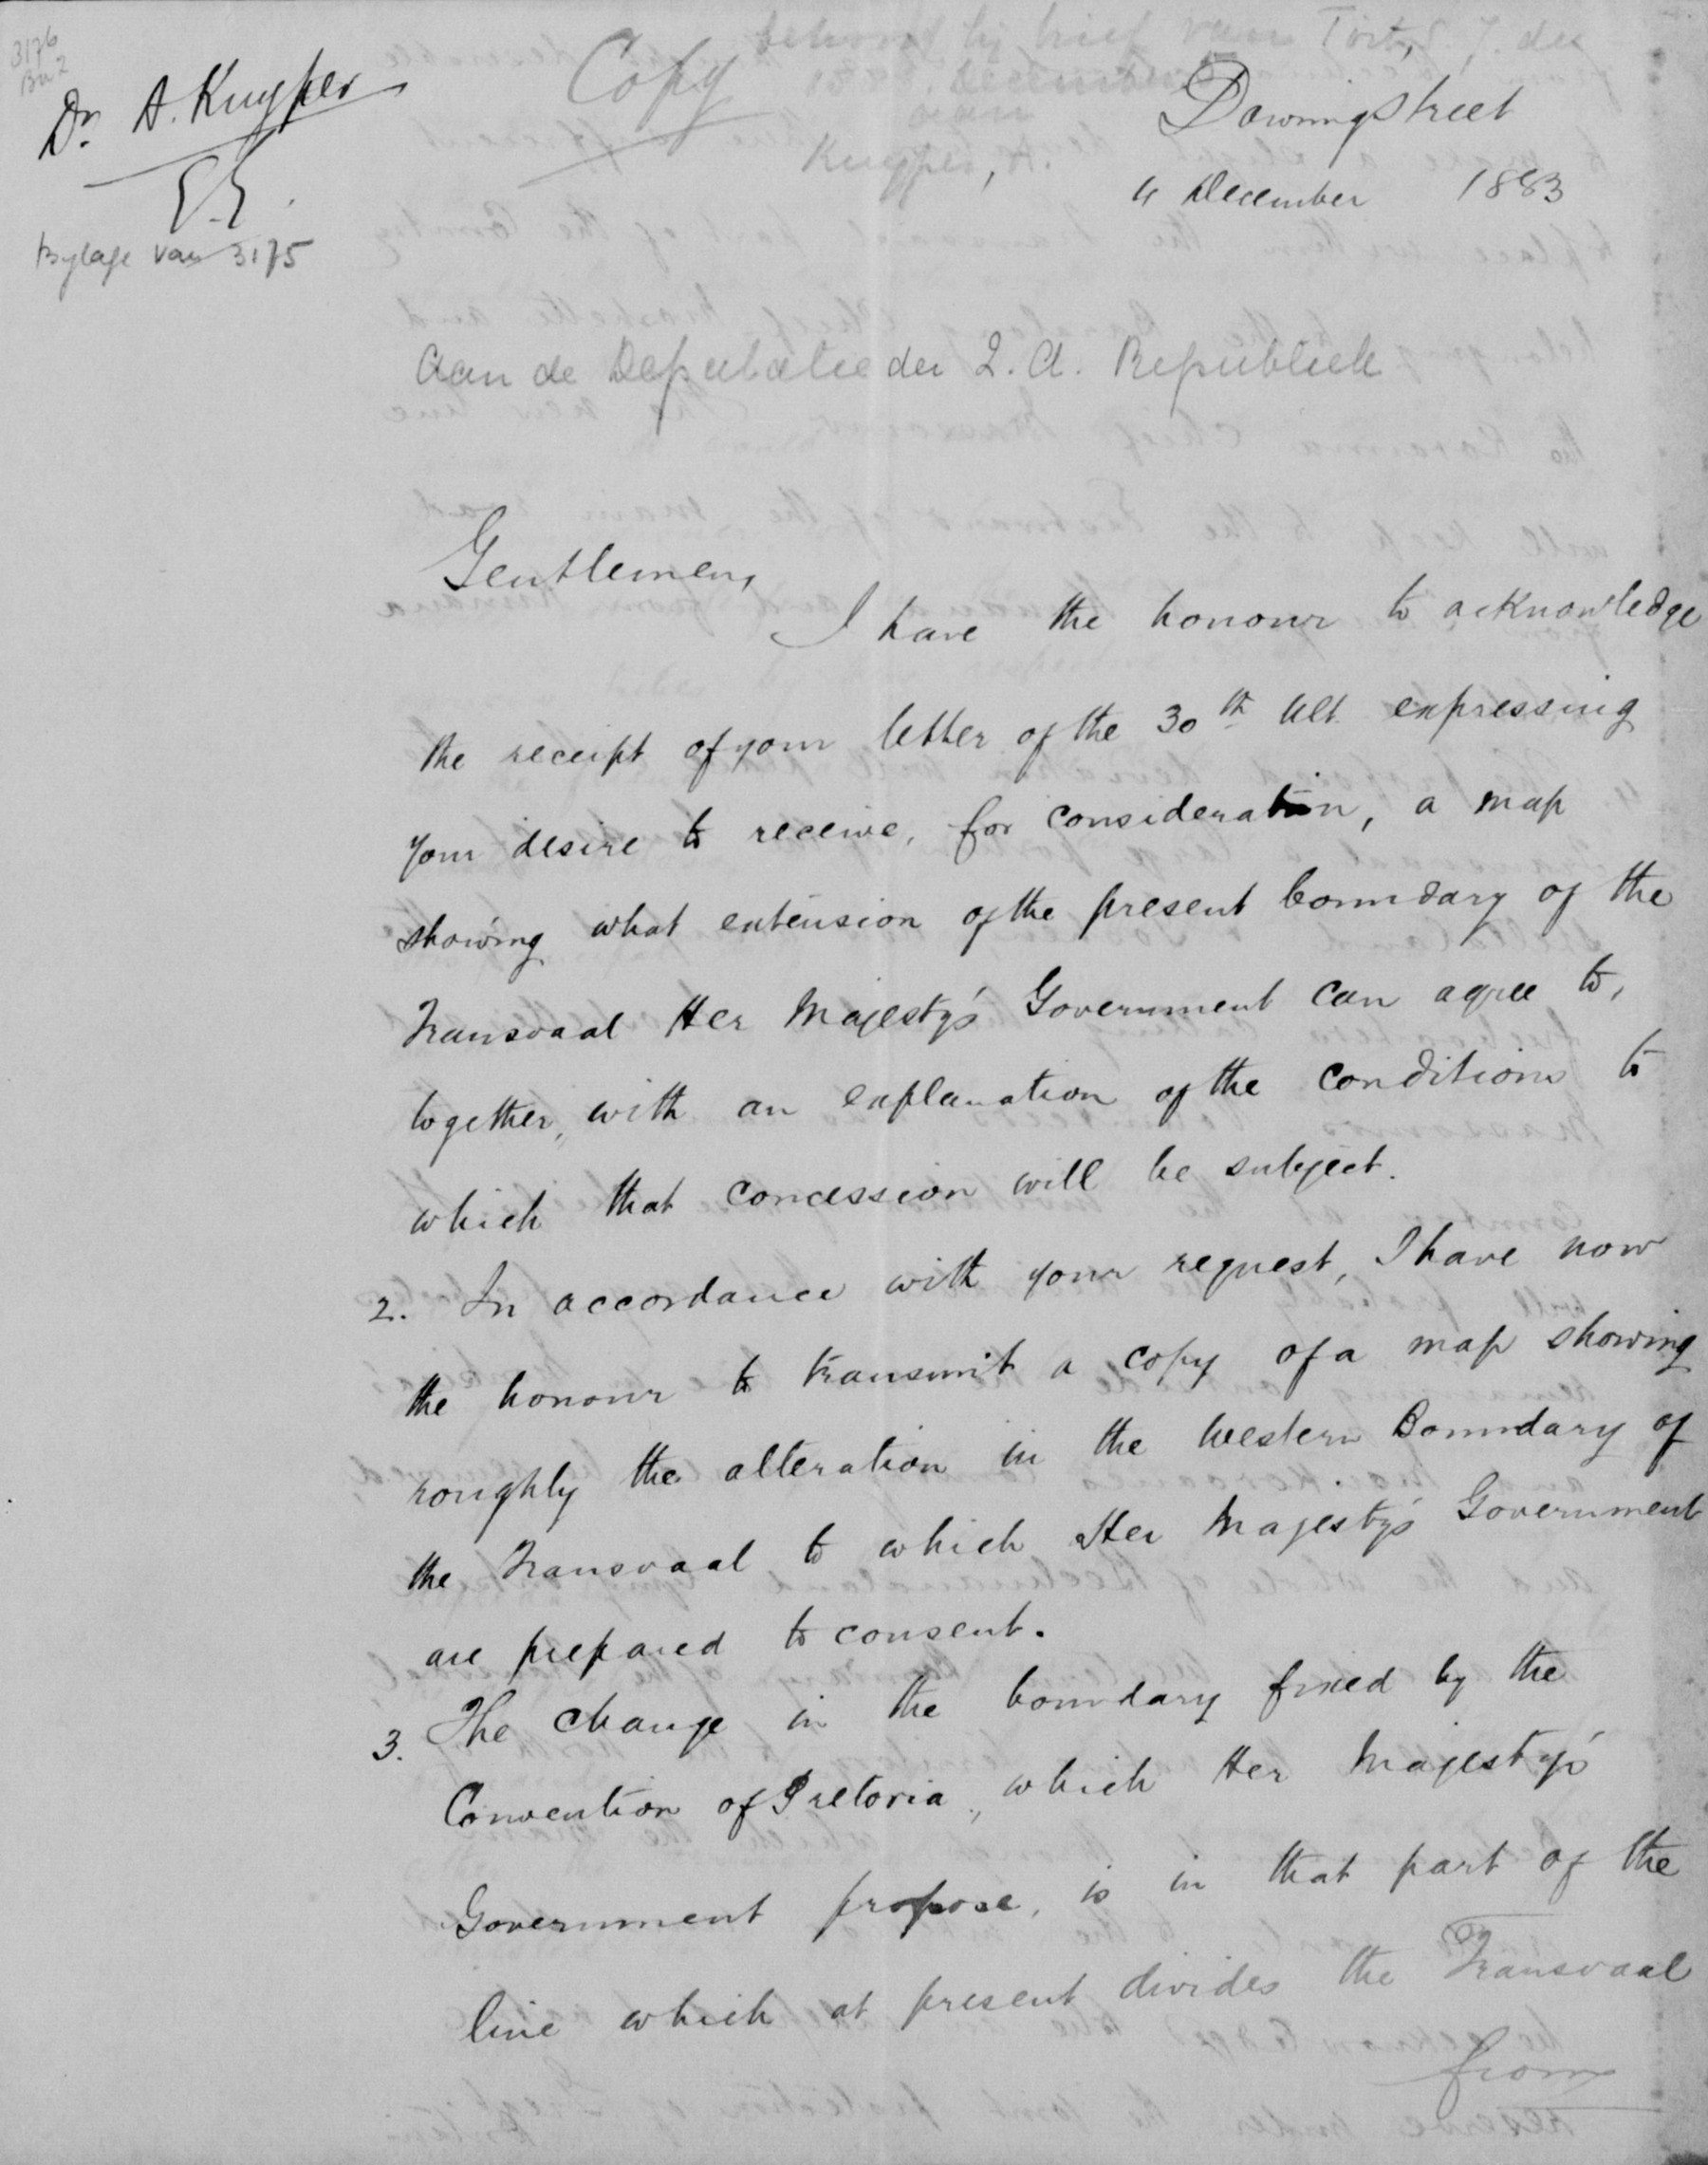 3176
Dr. A. Kuyper
Bylage van 3175
Copy
behoort bij brief van Toit, S. J. du
13 December
aan
Kuyper, A.
Downing Street
4 December 1883
Aan de Deputatie der Z. A. Republiek
Gentlemen,
I have the honour to acknowledge
the receipt of your letter of the 30th Ult. expressing
your desire to receive, for consideration, a map
showing what extension of the present boundary of the
Transvaal Her Majesty's Government can agree to,
together, with an explanation of the conditions to
which that concession will be subject.
2. In accordance with your request, I have now
the honour to transmit a copy of a map showing
roughly the alteration in the Western Boundary of
the Transvaal to which Her Majesty's Government
are prepared to consent.
3. The change in the boundary fixed by the
Convention of Pretoria, which Her Majesty's
Government propose, is in that part of the
line which at present divides the Transvaal
from